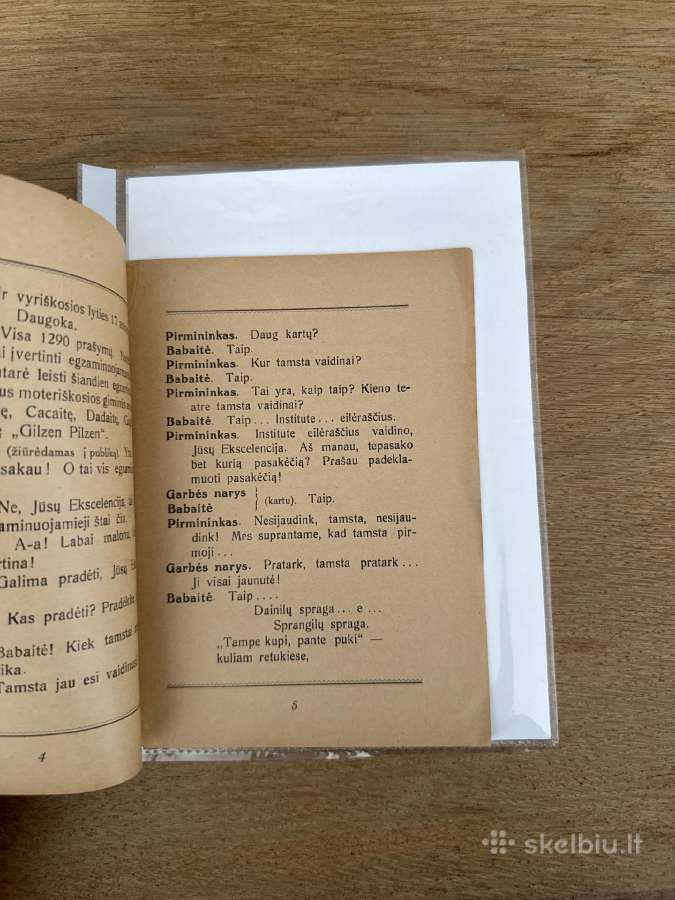 ir vyriškosios lyties 17
Daugoka.
Visa 1290 prašymų.
įvertinti egzaminuojam
utarė leisti šiandien
us moteriškosios giminės
Cacaitę, Dadaitę,
„Gilzen Pilzen“.
(žiūrėdamas į publiką).
sakau! O tai vis
Ne, Jūsų Ekscelencija,
aminuojamieji štai čia.
A-a! Labai malonu,
rtina!
Galima pradėti,
Kas pradėti? Pradėkite,
Babaitė! Kiek tamsta
ika.
Tamsta jau esi
4
Pirmininkas. Daug kartų?
Babaitė. Taip.
Pirmininkas. Kur tamsta vaidinai?
Babaitė. Taip.
Pirmininkas. Tai yra, kaip taip? Kieno te-
atre tamsta vaidinai?
Babaitė. Taip... Institute... eilėraščius.
Pirmininkas. Institute eilėraščius vaidino,
Jūsų Ekscelencija. Aš manau, tepasako
bet kurią pasakėčią? Prašau padekla-
muoti pasakėčią!
Garbės narys
Babaitė } (kartu). Taip.
Pirmininkas. Nesijaudink, tamsta, nesijau-
dink! Mes suprantame, kad tamsta pir-
moji...
Garbės narys. Pratark, tamsta pratark...
Ji visai jaunutė!
Babaitė. Taip....
Dainilų spraga... e...
Sprangilų spraga.
„Tampe kupi, pante puki“ —
kuliam retukiese,
5
skelbiu.lt